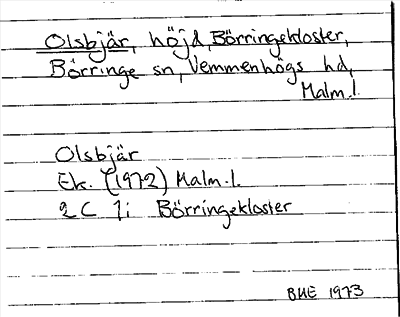 Olsbjär, höjd, Börringekloster,
Börringe sn, Vemmenhögs hd,
Malm.l.
Olsbjär
Ek. (1972) Malm.l.
2 C 7i Börringekloster
BHE 1973